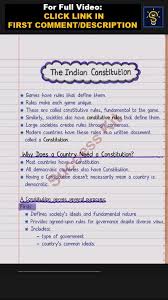 For Full Video:
CLICK LINK IN
FIRST COMMENT/DESCRIPTION
The Indian Constitution
Games have rules that define them.
Rules make each game unique.
These are called constitutive rules, fundamental to the game.
Similarly, societies also have constitutive rules that define them.
Large societies create rules through consensus.
Modern countries have these rules in a written document
called a Constitution.
Why Does a Country Need a Constitution?
Most countries have Constitution.
All democratic countries also have Constitution.
Having a Constitution doesn't necessarily mean a country is
democratic.
A Constitution serves several purposes:
First:
Defines society's ideals and fundamental nature
Provides agreed-upon rules for governance despite diverse
views.
Includes:
type of government
country's common ideals